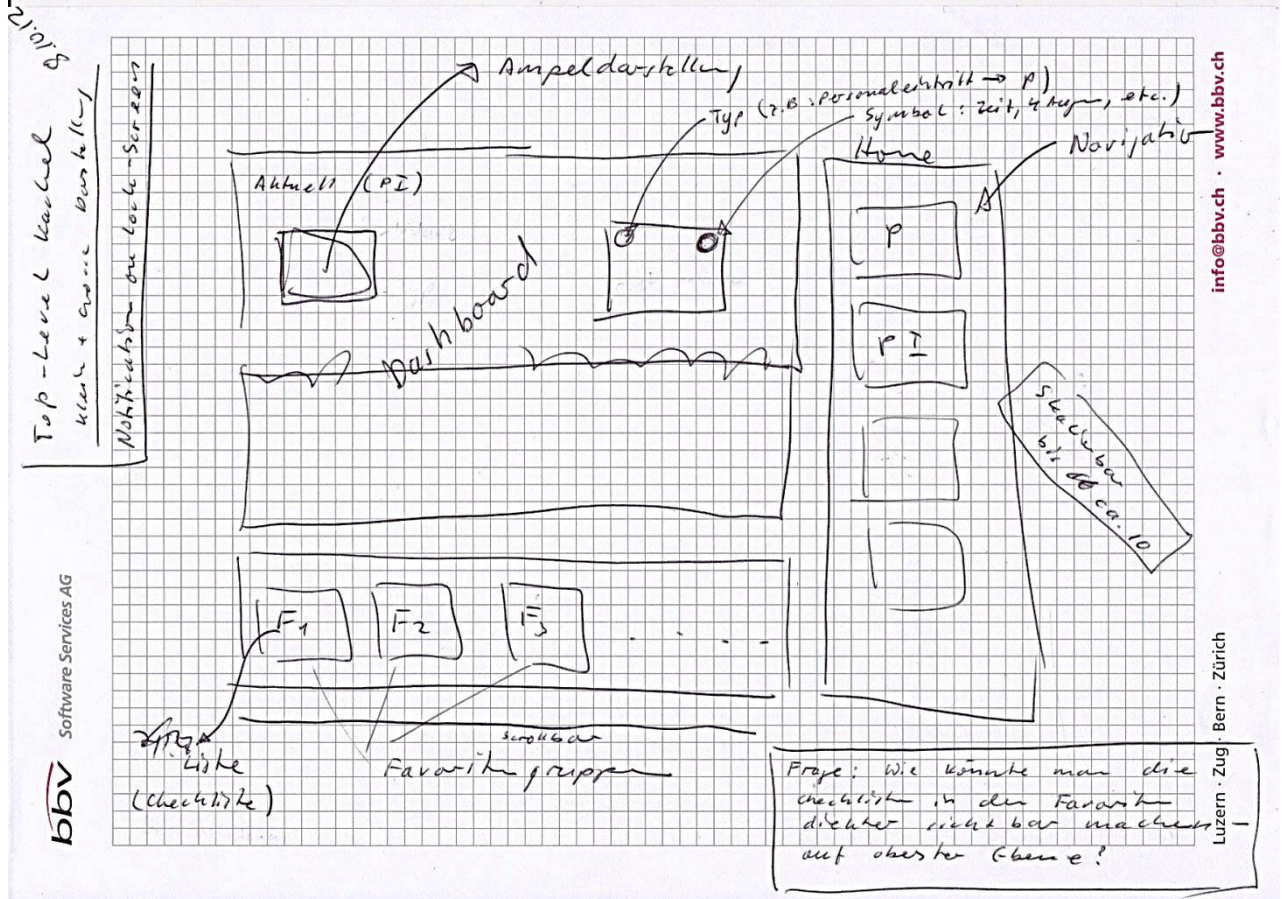 9.10.12
Top-Level Kachel
klein + grosse Darstellung
Notification on Lock-Screen
Ampeldarstellung
Typ (z.B. Personaleintritt → P)
Symbol: Zeit, 4 Augen, etc.)
Navigation
Home
Aktuell (PI)
Dashboard
P
PI
Skalierbar
bis ca. 10
F1 F2 F3 . . . .
scrollbar
Liste
(Checkliste)
Favoritengruppen
Frage: Wie könnte man die
Checklisten in den Favoriten
direkter sichtbar machen –
auf oberster Ebene?
bbv Software Services AG
Luzern · Zug · Bern · Zürich
info@bbv.ch · www.bbv.ch